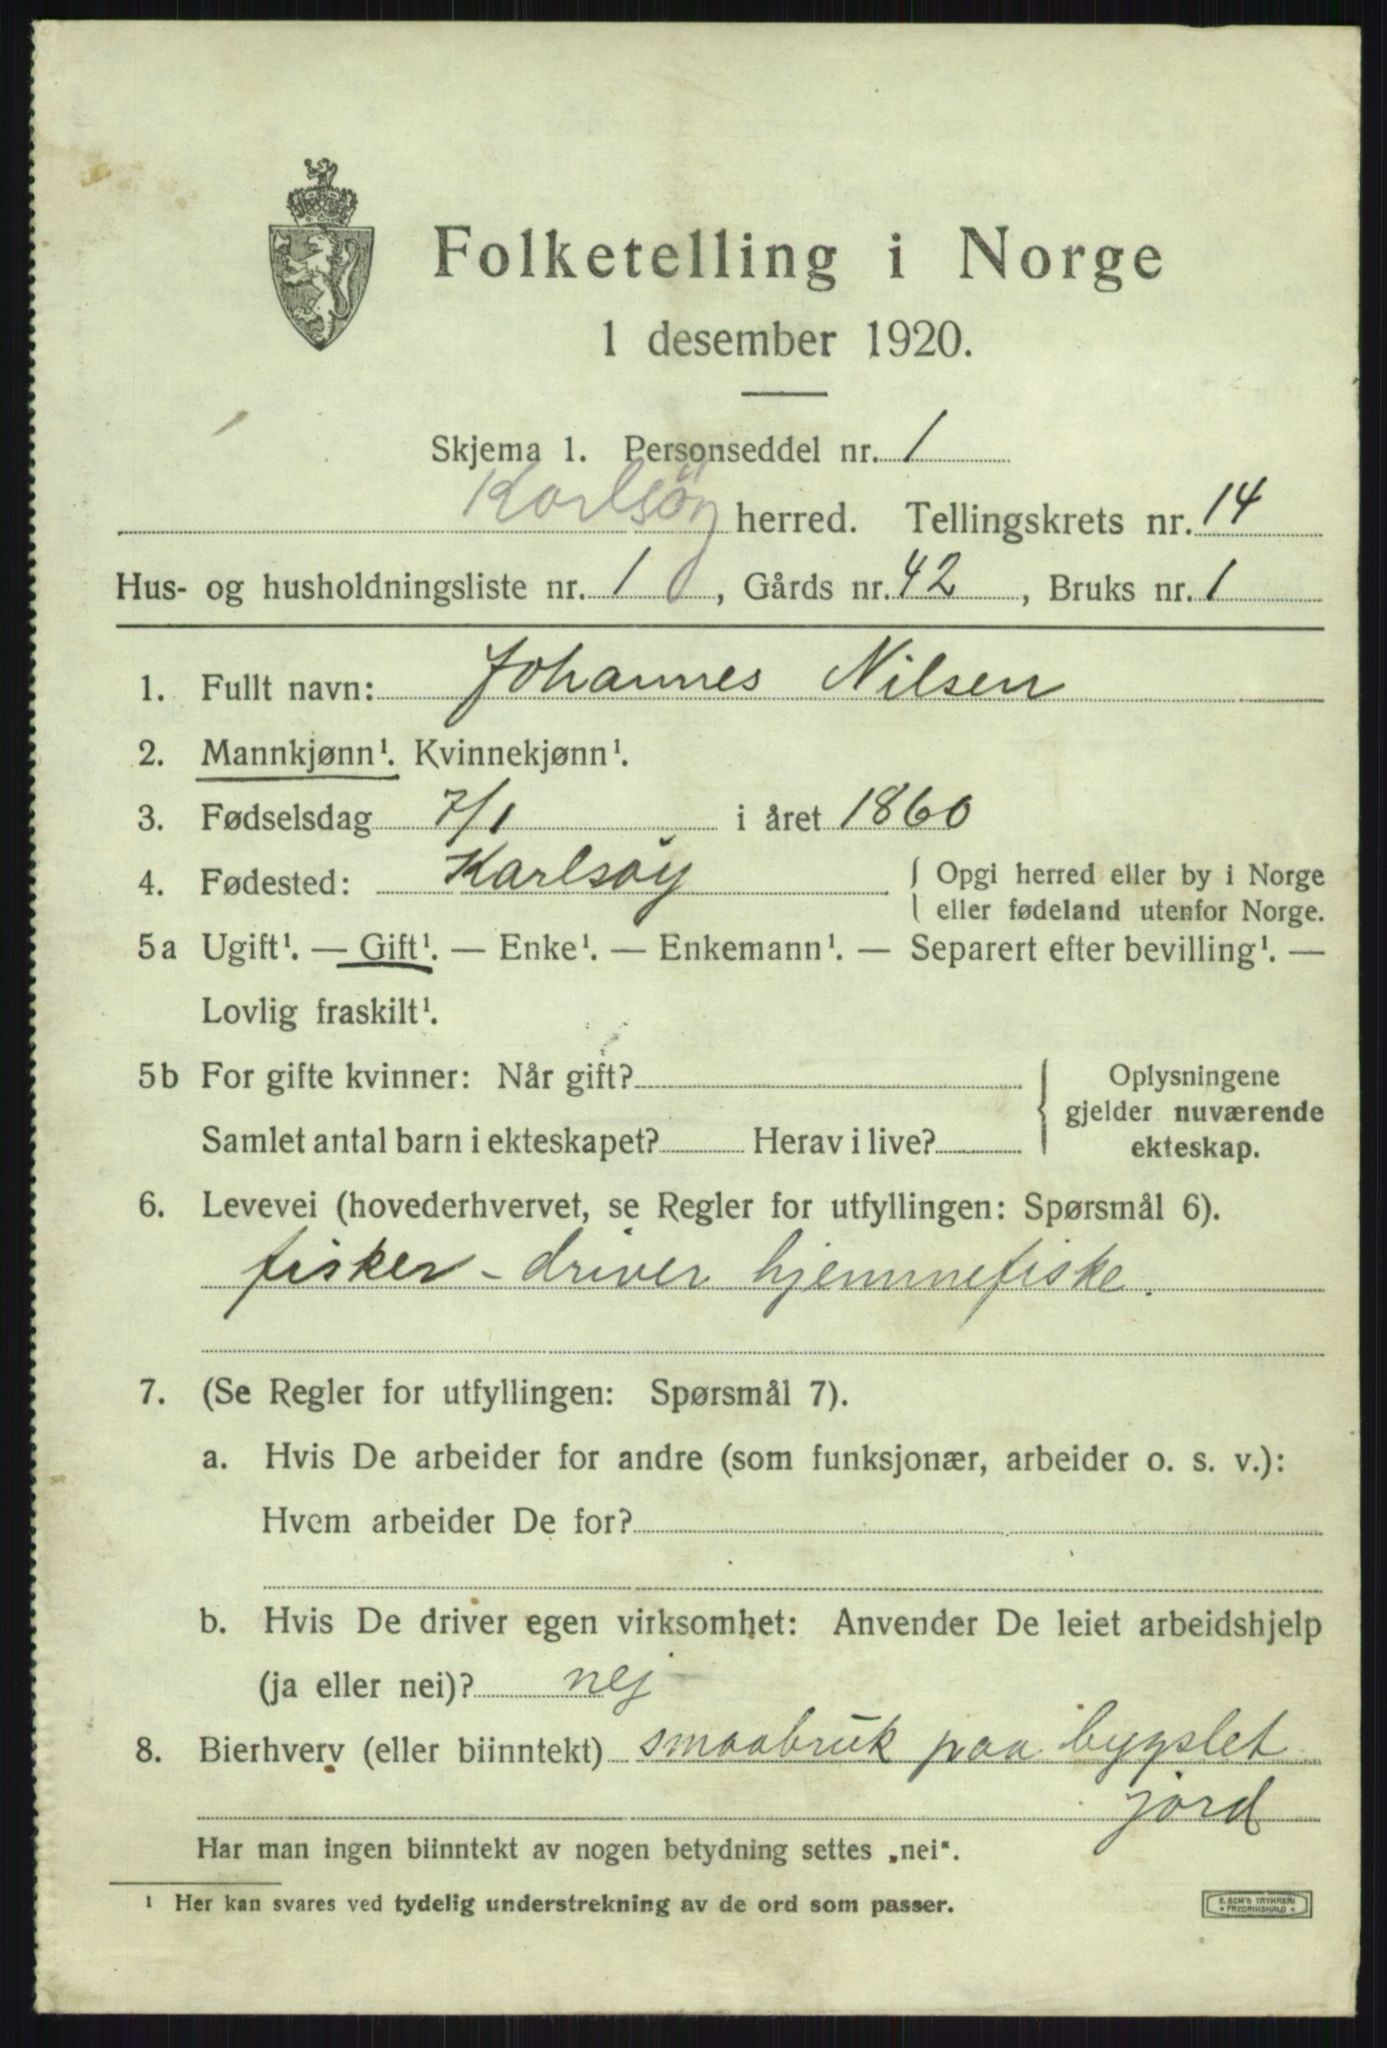 Folketelling i Norge
1 desember 1920.
Skjema 1. Personseddel nr. 1
Karlsöy herred. Tellingskrets nr. 14
Hus- og husholdningsliste nr. 1, Gårds nr. 42, Bruks nr. 1
1. Fullt navn: Johannes Nilsen
2. Mannkjønn¹. Kvinnekjønn¹.
3. Fødselsdag 7/1 i året 1860
4. Fødested: Karlsøy { Opgi herred eller by i Norge
eller fødeland utenfor Norge.
5a Ugift¹. — Gift¹. — Enke¹. — Enkemann¹. — Separert efter bevilling¹. —
Lovlig fraskilt¹.
5b For gifte kvinner: Når gift? { Oplysningene
gjelder nuværende
Samlet antal barn i ekteskapet? Herav i live? ekteskap.
6. Levevei (hovederhvervet, se Regler for utfyllingen: Spørsmål 6).
fisker - driver hjemmefiske.
7. (Se Regler for utfyllingen: Spørsmål 7).
a. Hvis De arbeider for andre (som funksjonær, arbeider o. s. v.):
Hvem arbeider De for?
b. Hvis De driver egen virksomhet: Anvender De leiet arbeidshjelp
(ja eller nei)? nej
8. Bierhverv (eller biinntekt) smaabruk paa bygslet
jord
Har man ingen biinntekt av nogen betydning settes „nei“.
¹ Her kan svares ved tydelig understrekning av de ord som passer.
E. SEM'S TRYKKERI
* FREDRIKSHALD *